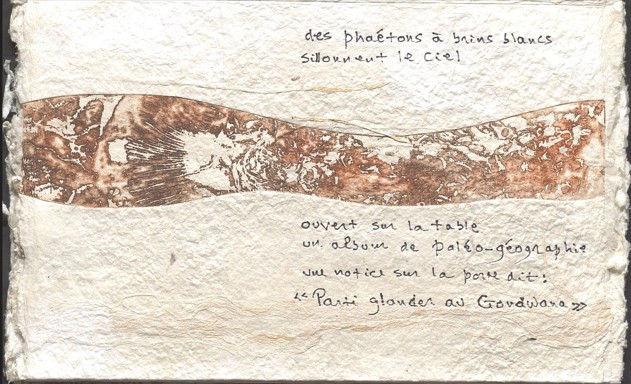 des phaétons à brins blancs
sillonnent le ciel
ouvert sur la table
un album de paléo-géographie
une notice sur la porte dit :
« Parti glander au Gondwana »